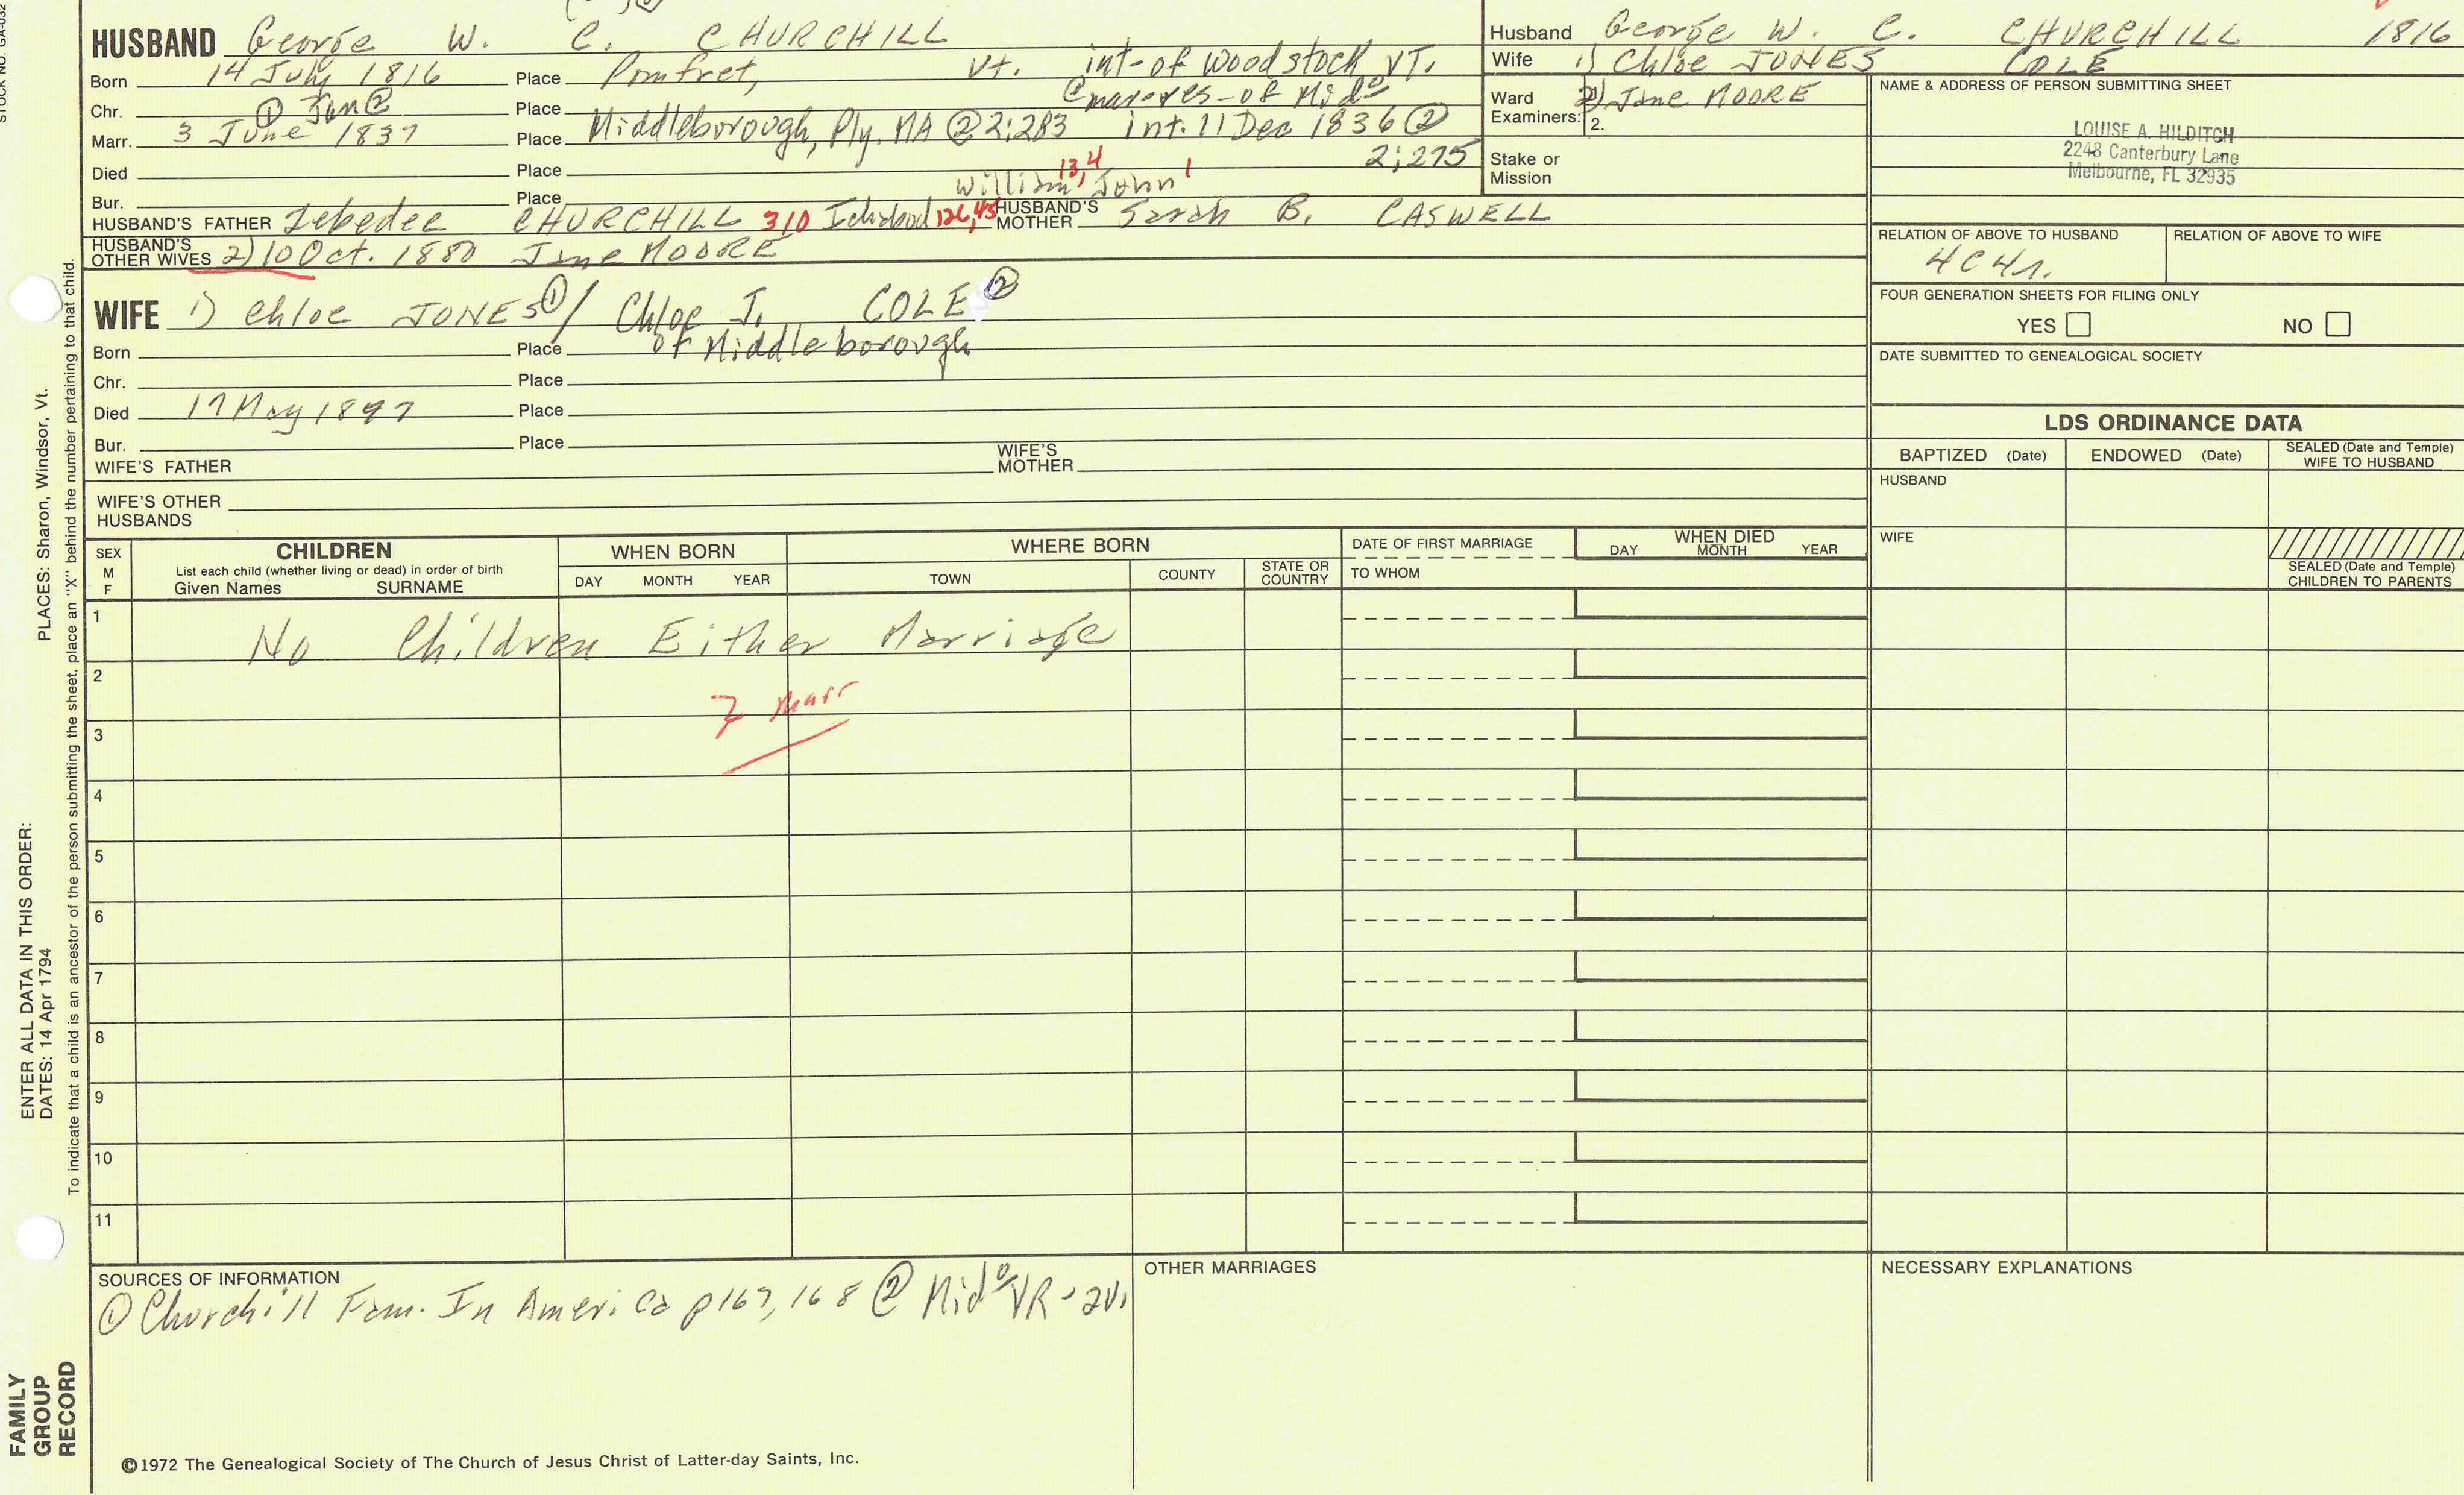 HUSBAND George W. C. CHURCHILL
Born 14 July 1816 Place Pomfret, Vt. int-of Woodstock VT.
Chr. ① Jan② Place
Marr. 3 June 1837 Place Middleborough, Ply. MA @ 2:283 int. 11 Dec 1836 ②
2:275
Died Place
Bur. Place
William 13,4 John 1
HUSBAND'S FATHER Zebedee CHURCHILL 310 Ichabod 126,45 HUSBAND'S MOTHER Sarah B. CASWELL
HUSBAND'S OTHER WIVES 2) 10 Oct. 1880 Jane MOORE
WIFE 1) Chloe JONES① / Chloe J. COLE②
Born Place of Middleborough
Chr. Place
Died 17 May 1897 Place
Bur. Place
WIFE'S FATHER WIFE'S MOTHER
WIFE'S OTHER HUSBANDS
Husband George W. C. CHURCHILL 1816
Wife 1) Chloe JONES COLE
Ward Examiners: 2) Jane MOORE
2.
Stake or Mission
NAME & ADDRESS OF PERSON SUBMITTING SHEET
LOUISE A. HILDITCH
2248 Canterbury Lane
Melbourne, FL 32935
RELATION OF ABOVE TO HUSBAND RELATION OF ABOVE TO WIFE
4C4r.
FOUR GENERATION SHEETS FOR FILING ONLY
YES NO
DATE SUBMITTED TO GENEALOGICAL SOCIETY
LDS ORDINANCE DATA
BAPTIZED (Date) ENDOWED (Date) SEALED (Date and Temple) WIFE TO HUSBAND
HUSBAND
WIFE
SEALED (Date and Temple) CHILDREN TO PARENTS
SEX M F
CHILDREN
List each child (whether living or dead) in order of birth
Given Names SURNAME
WHEN BORN
DAY MONTH YEAR
WHERE BORN
TOWN COUNTY STATE OR COUNTRY
DATE OF FIRST MARRIAGE
TO WHOM
WHEN DIED
DAY MONTH YEAR
1 No Children Either Marriage
2
3
4
5
6
7
8
9
10
11
SOURCES OF INFORMATION
① Churchill Fam. In America p167, 168 ② Mid° VR - 2V.
OTHER MARRIAGES
NECESSARY EXPLANATIONS
©1972 The Genealogical Society of The Church of Jesus Christ of Latter-day Saints, Inc.
STOCK NO. GA-032
PLACES: Sharon, Windsor, Vt.
ENTER ALL DATA IN THIS ORDER:
DATES: 14 Apr 1794
To indicate that a child is an ancestor of the person submitting the sheet, place an "X" behind the number pertaining to that child.
FAMILY
GROUP
RECORD